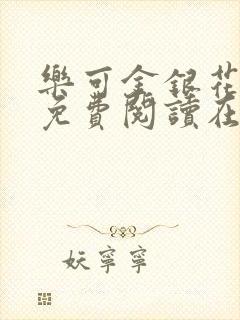 樂可金銀花
免費閱讀在
妖寧寧